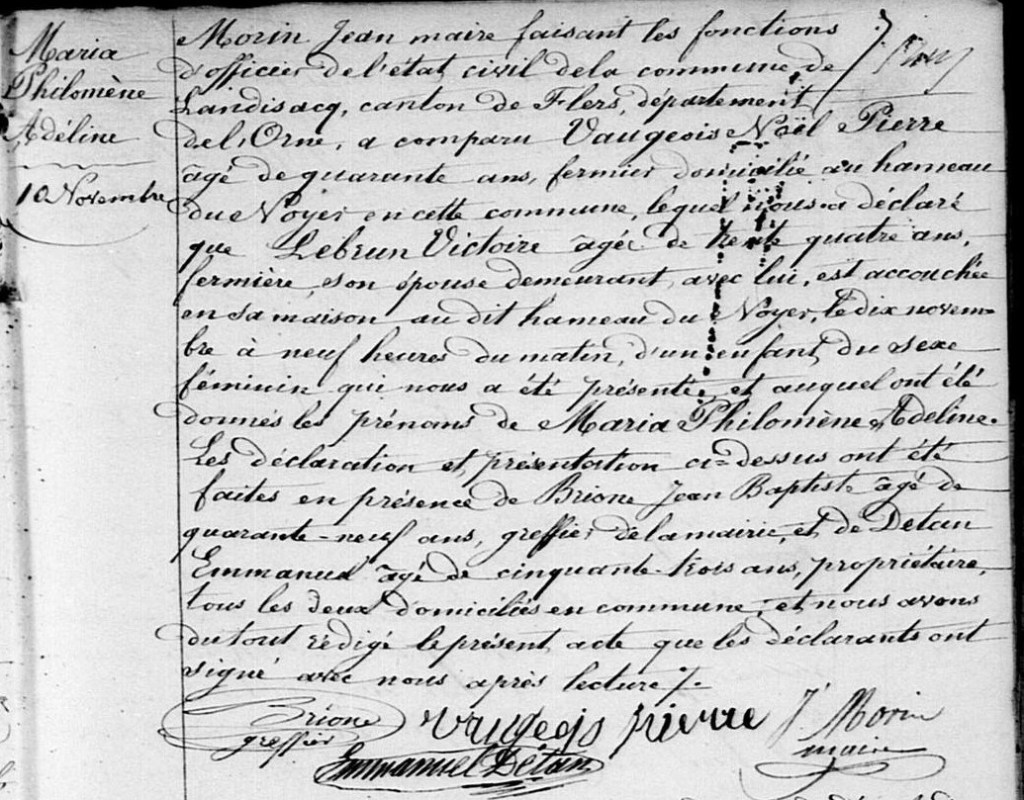 Maria
Philomène
Adéline
10 Novembre
Morin Jean maire faisant les fonctions
d'officier de l'état civil de la commune de
Landisacq, canton de Flers, département
de l'Orne, a comparu Vaugeois Noël Pierre
âgé de quarante ans, fermier domicilié au hameau
du Noyer en cette commune, lequel nous a déclaré
que Lebrun Victoire âgée de trente quatre ans,
fermière, son épouse demeurant avec lui, est accouchée
en sa maison au dit hameau du Noyer, le dix novem=
bre à neuf heures du matin, d'un enfant du sexe
féminin qui nous a été présenté, et auquel ont été
donnés les prénoms de Maria Philomène Adeline.
Les déclaration et présentation ci=dessus ont été
faites en présence de Brione Jean Baptiste âgé de
quarante-neuf ans, greffier de la mairie, et de Detan
Emmanuel âgé de cinquante trois ans, propriétaire,
tous les deux domiciliés en commune, et nous avons
du tout rédigé le présent acte que les déclarants ont
signé avec nous après lecture /.
Brione
greffier
Vaugeois pierre
J Morin
maire
Emmanuel Détan